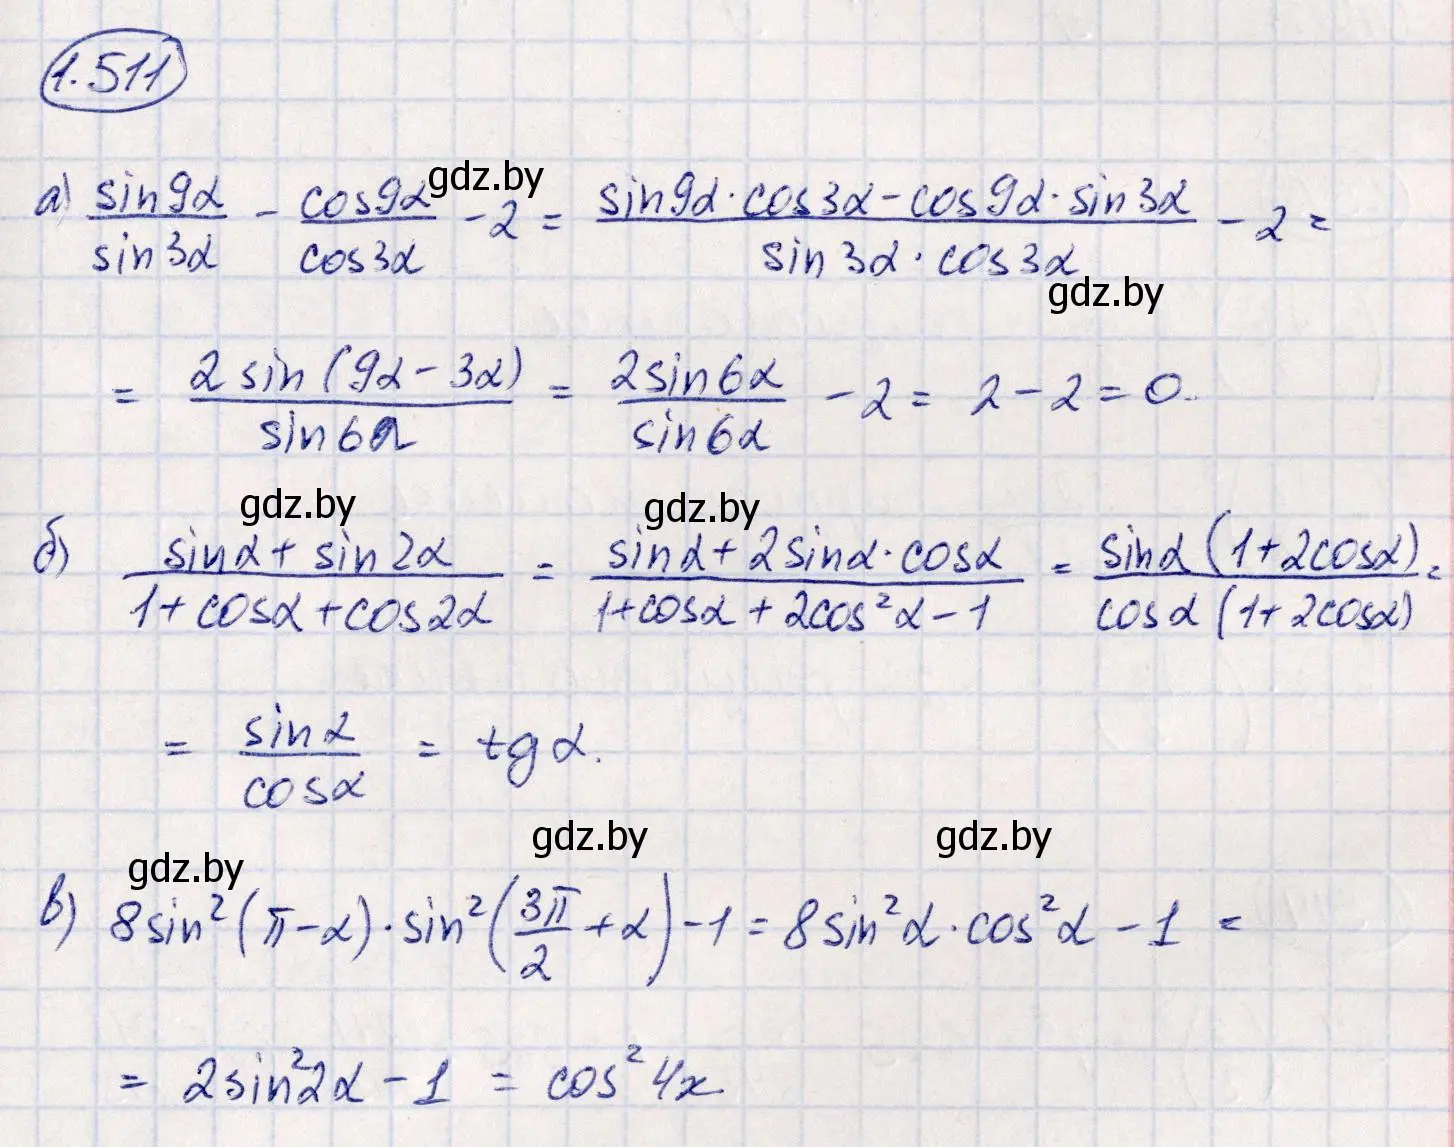 1.511
а) sin9α/sin3α - cos9α/cos3α - 2 = (sin9α·cos3α - cos9α·sin3α)/(sin3α·cos3α) - 2 =
gdz.by
gdz.by
= 2sin(9α-3α)/sin6α = 2sin6α/sin6α - 2 = 2-2=0.
gdz.by gdz.by
б) (sinα + sin2α)/(1+cosα+cos2α) = (sinα + 2sinα·cosα)/(1+cosα+2cos²α-1) = sinα(1+2cosα)/cosα(1+2cosα) =
= sinα/cosα = tgα.
gdz.by gdz.by gdz.by
в) 8sin²(π-α)·sin²(3π/2+α)-1 = 8sin²α·cos²α-1 =
= 2sin²2α-1 = cos²4x